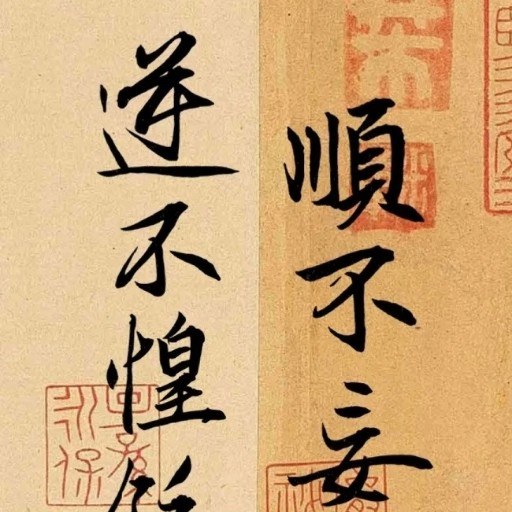 順不妄
逆不惶